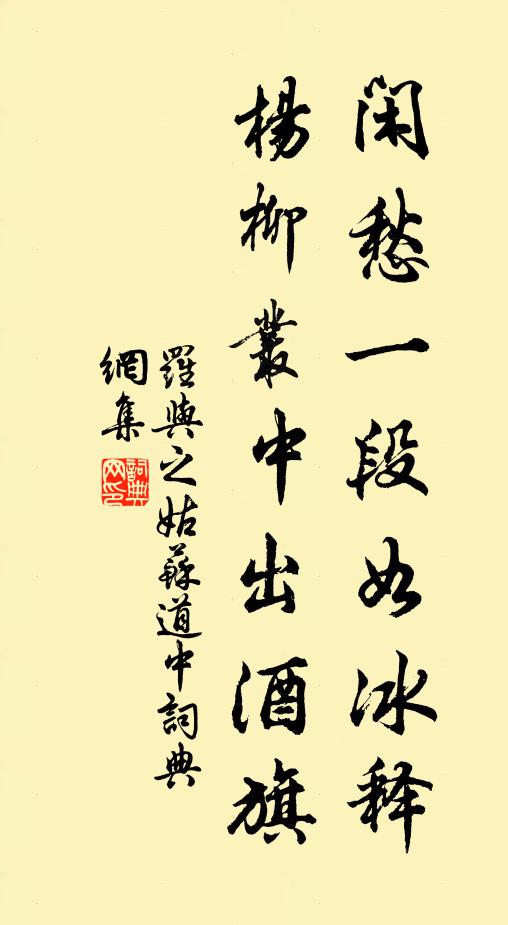 闲愁一段如冰释
楊柳叢中出酒旗
羅與之姑蘇道中詞典
網集
詞典
网印